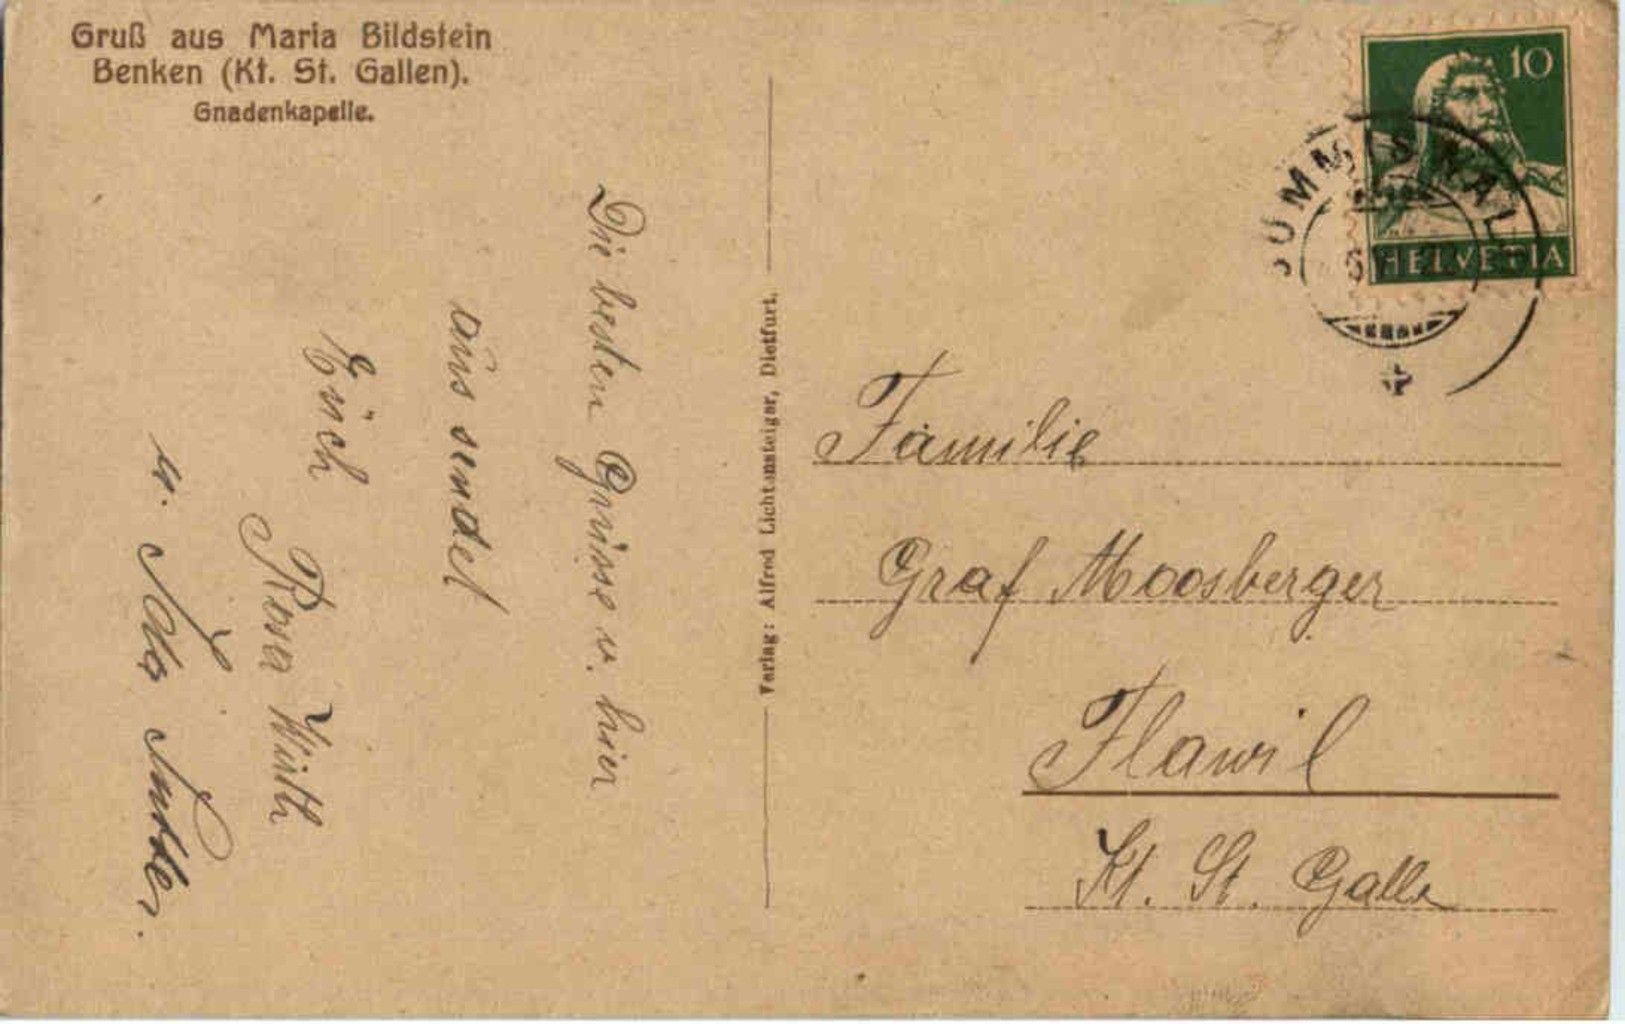 Gruß aus Maria Bildstein
Benken (Kt. St. Gallen).
Gnadenkapelle.
Die besten Grüsse v. hier
aus sendet
Eüch
Rosa Wirth
u. Ida
Verlag: Alfred Lichtensteiger, Dietfurt.
10
HELVETIA
Familie
Graf Moosberger
Flawil
Kt. St. Galle